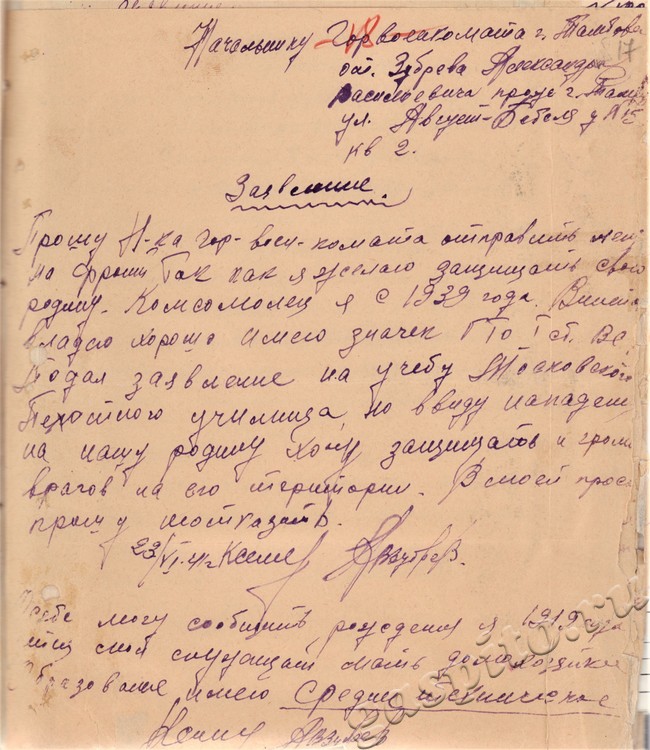 Начальнику Горвоенкомата г. Тамбова
17
от. Зубрева Александра
Василиевича прож г. Там
ул. Август-Бебеля д №15
кв 2.
Заявление
Прошу Н-ка гор-воен-комата отправить мен
на фронт Так как я желаю защищать свою
родину. Комсомолец я с 1939 года.
владею хорошо имею значек ГТО I ст.
Подал заявление на учебу Московского
Пехотного училища, но ввиду нападен
на нашу родину хочу защищать и громи
врагов на его територии. В моей прось
прошу неотказать.
23/VI-41 г К сему АВЗубрев.
О себе могу сообщить, рождения я 1919 года
отец служащий мать домохозяйка
Образование имею среднее техническое
К сему АВЗубрев
gaspito.ru